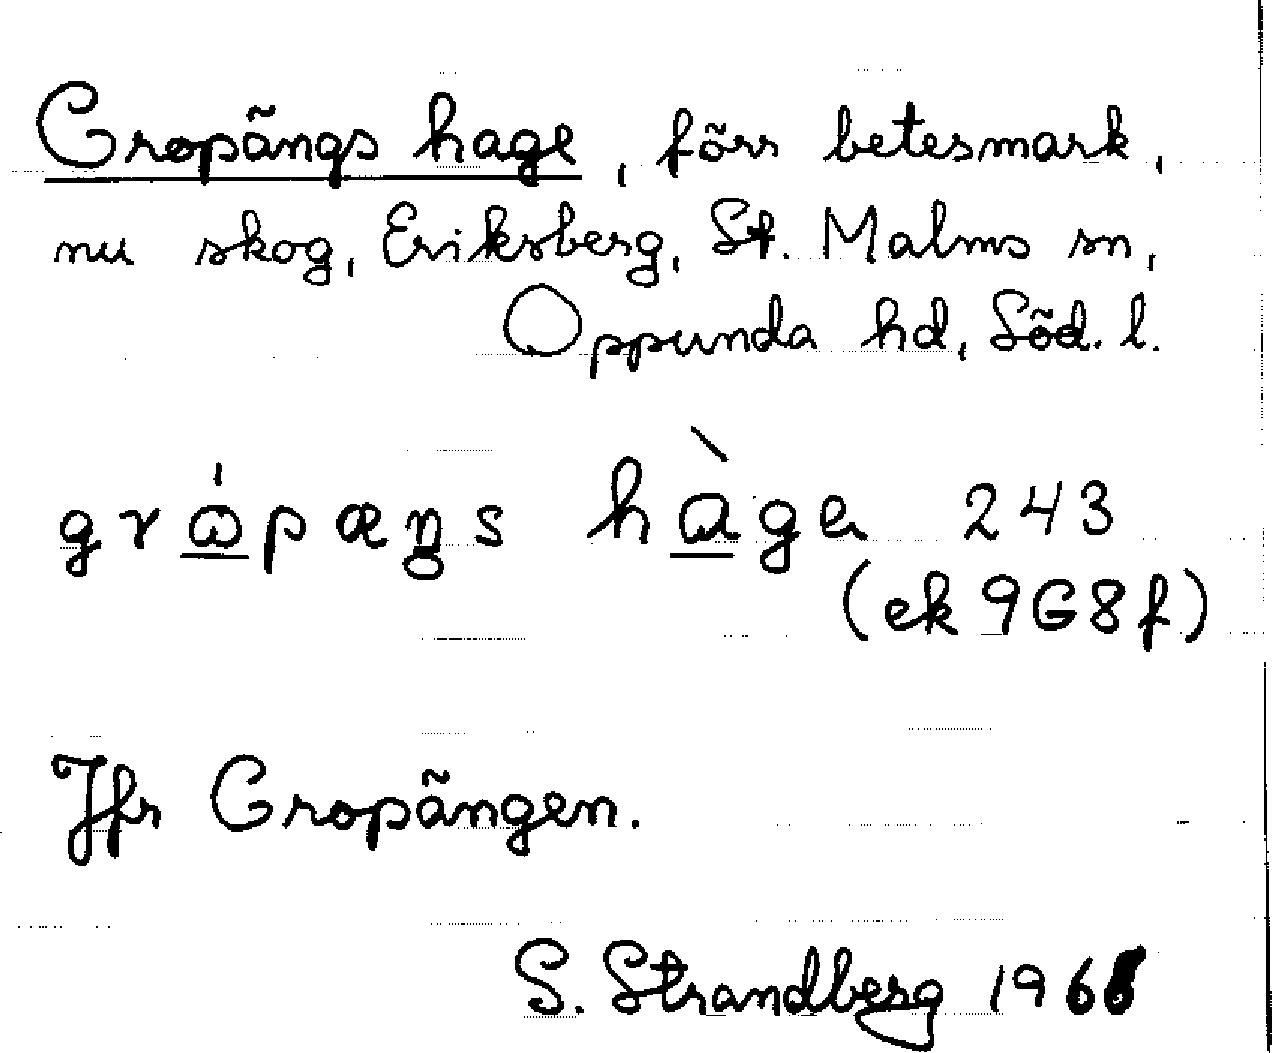 Gropängs hage, förr betesmark,
nu skog, Eriksberg, St. Malms sn,
Oppunda hd, Söd. l.
grώ̲pæŋs hɑ̲̀gɐ 243
(ek 9G8f)
Jfr Gropängen.
S. Strandberg